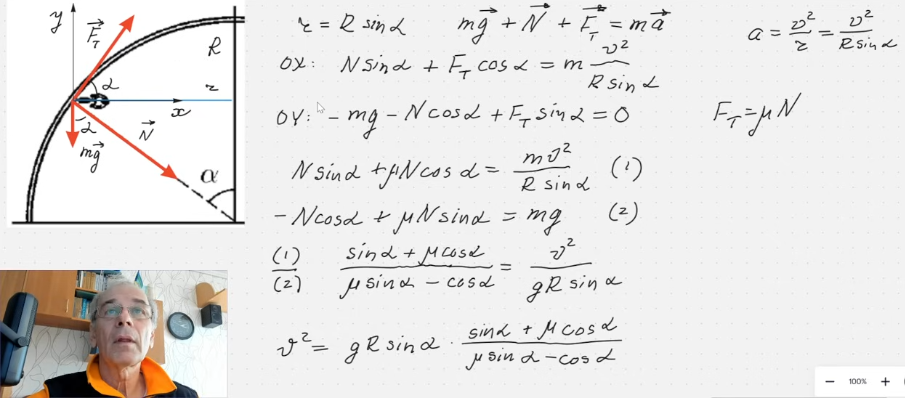 y F⃗_T R α r x α N⃗ mg⃗ α
r = R sinα mg⃗ + N⃗ + F⃗_T = ma⃗ a = v²/r = v²/(R sinα)
OX: N sinα + F_T cosα = m v²/(R sinα)
OY: - mg - N cosα + F_T sinα = 0 F_T = μN
N sinα + μN cosα = mv²/(R sinα) (1)
-N cosα + μN sinα = mg (2)
(1)/(2) (sinα + μ cosα)/(μ sinα - cosα) = v²/(gR sinα)
v² = gR sinα · (sinα + μ cosα)/(μ sinα - cosα)
− 100% +